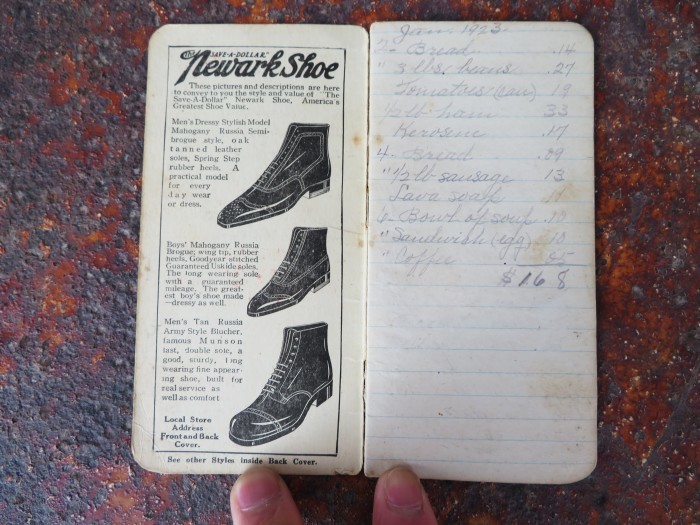 "SAVE-A-DOLLAR"
The Newark Shoe
These pictures and descriptions are here
to convey to you the style and value of "The
Save-A-Dollar" Newark Shoe, America's
Greatest Shoe Value.
Men's Dressy Stylish Model
Mahogany Russia Semi-
brogue style, oak
tanned leather
soles, Spring Step
rubber heels. A
practical model
for every
day wear
or dress.
Boys' Mahogany Russia
Brogue; wing tip, rubber
heels, Goodyear stitched
Guaranteed Uskide soles.
The long wearing sole,
with a guaranteed
mileage. The great-
est boy's shoe made
—dressy as well.
Men's Tan Russia
Army Style Blucher,
famous Munson
last, double sole, a
good, sturdy, long
wearing fine appear-
ing shoe, built for
real service as
well as comfort
Local Store
Address
Front and Back
Cover.
See other Styles inside Back Cover.
Jan. 1923
2- Bread .14
" 3 lbs. beans .27
Tomatoes (can) 19
1/2 lb ham 33
Kerosene .17
4. Bread .09
" 1/2 lb sausage 13
Lava soap 11
6 Bowl of soup .10
" Sandwich (egg) .10
" Coffee .05
$1.68